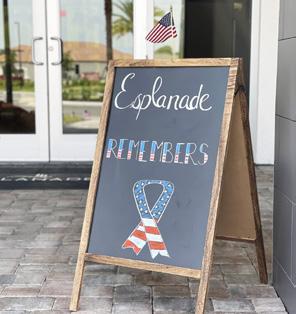 Esplanade
REMEMBERS